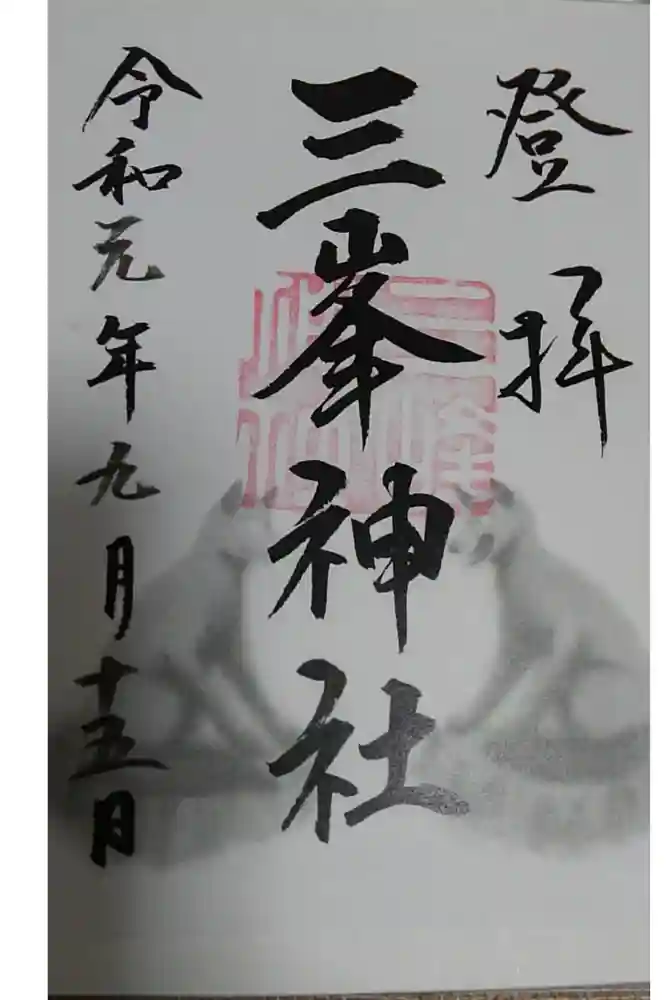 登拝
三峯神社
令和元年九月十五日